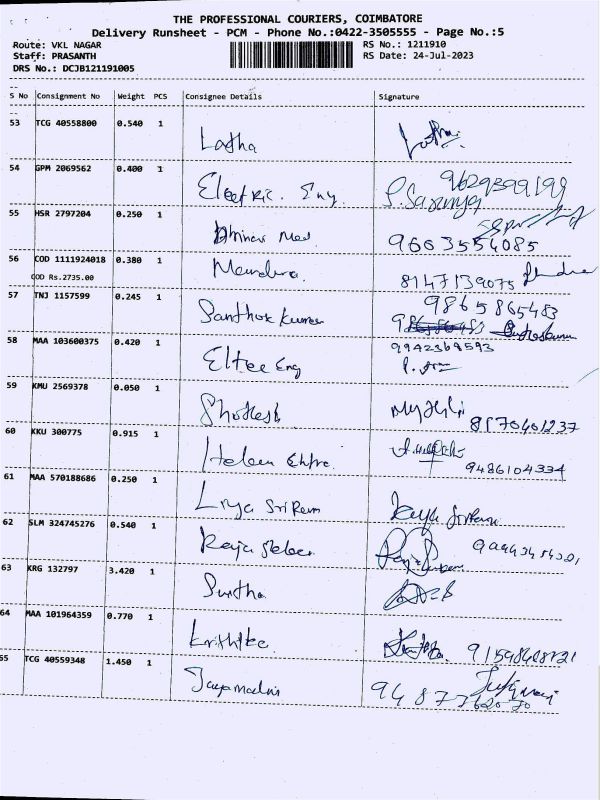 THE PROFESSIONAL COURIERS, COIMBATORE
Delivery Runsheet - PCM - Phone No.:0422-3505555 - Page No.:5
Route: VKL NAGAR RS No.: 1211910
Staff: PRASANTH RS Date: 24-Jul-2023
DRS No.: DCJB121191005
S No Consignment No Weight PCS Consignee Details Signature
53 TCG 40558800 0.540 1 Latha
54 GPM 2069562 0.400 1 Electric. Eny 9629399199
S. Saranya
55 HSR 2797204 0.250 1 9663554085
56 COD 1111924018 0.380 1 8147139075
COD Rs.2735.00
57 TNJ 1157599 0.245 1 Santhok Kumar 9865865483
58 MAA 103600375 0.420 1 Eltee Eng 9942368593
59 KMU 2569378 0.050 1 8170401237
60 KKU 300775 0.915 1 Helen 9486104334
61 MAA 570188686 0.250 1 Liya SriRam
62 SLM 324745276 0.540 1 Raja
63 KRG 132797 3.420 1
64 MAA 101964359 0.770 1 Krithika
65 TCG 40559348 1.450 1 Jayamalini